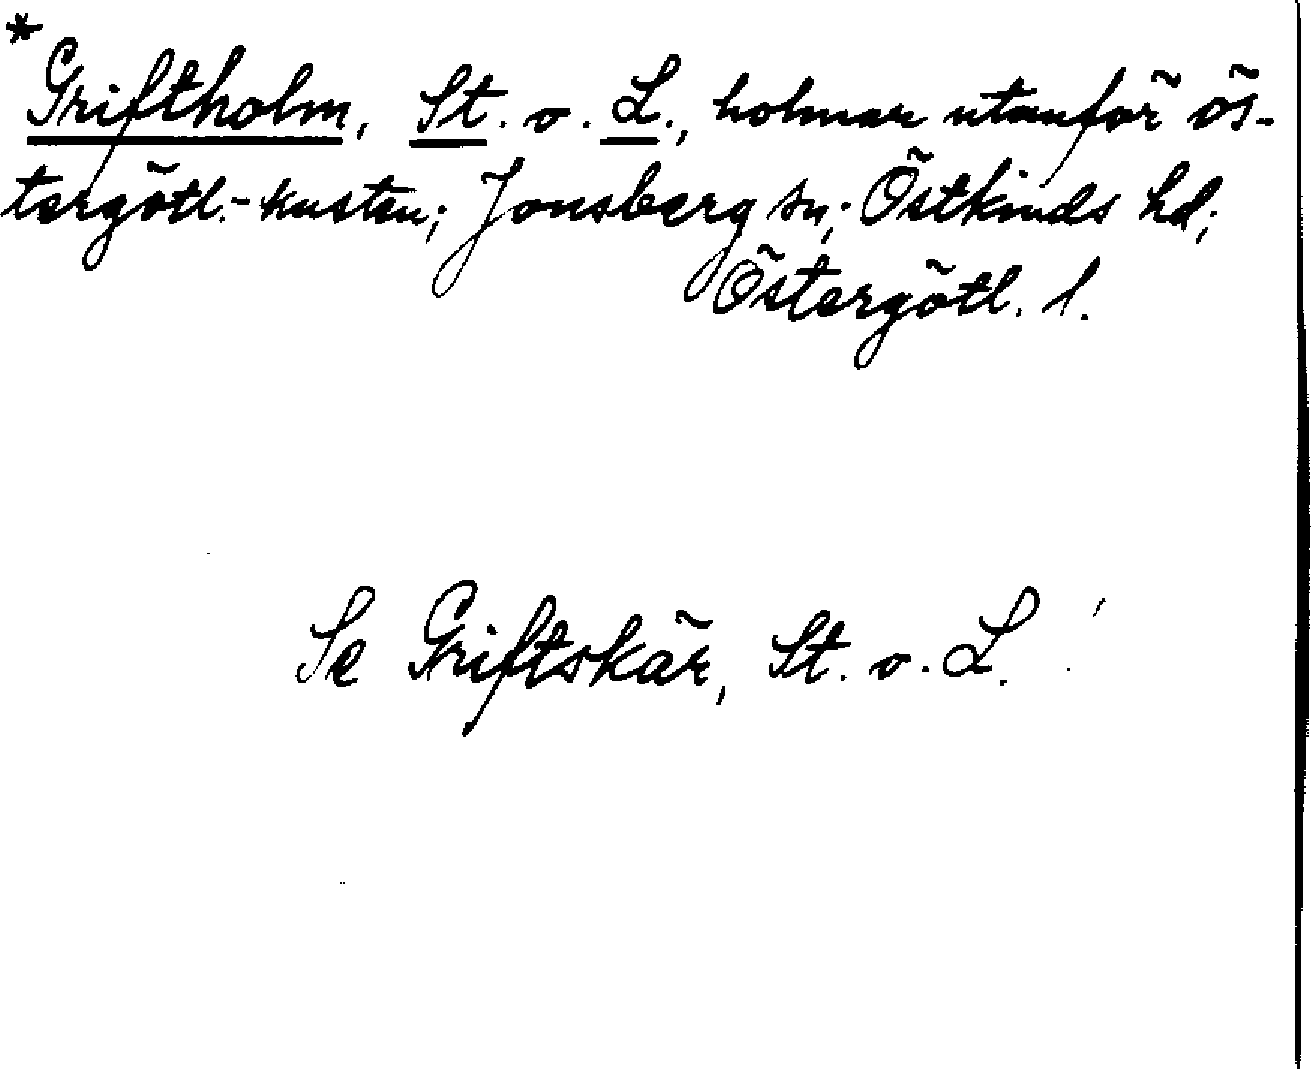 *
Griftholm, St. o. L., holmar utanför ös-
tergötl.-kusten; Jonsberg sn; Östkinds hd;
Östergötl. l.
Se Griftskär, St. o. L.